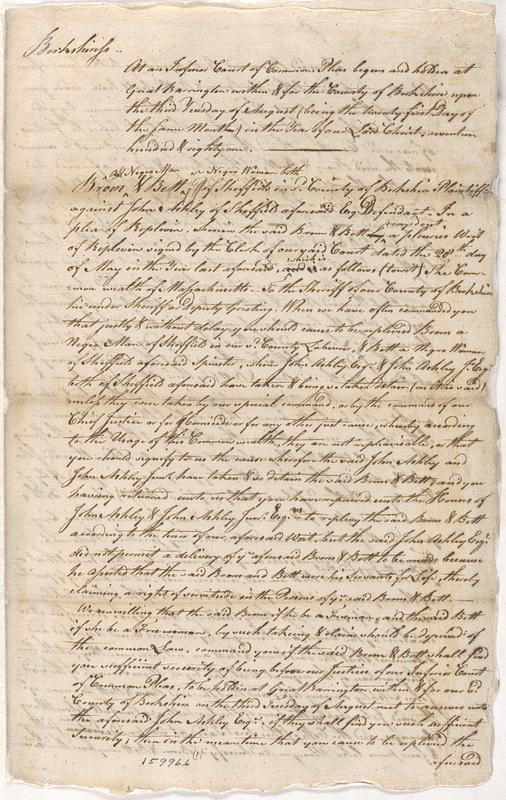 Berkshire ss..
At an Inferior Court of Common Pleas begun and holden at
Great Barrington within & for the County of Berkshire upon
the third Tuesday of August (being the twenty first Day of
the same Month) in the Year of our Lord Christ, seventeen
hundred & eighty one.
a Negro Man a Negro Woman both
Brom & Bett of Sheffield in sd. County of Berkshire Plaintiffs
against John Ashley of Sheffield aforesaid Esqr. Defendant. In a
plea of Replevin, wherein the said Brom & Bett a pluries Writ
of Replevin signed by the Clerk of our said Court dated the 28th day
which is
of May in the Year last aforesaid, as follows (towit) The Com-
-mon wealth of Massachusetts. To the Sheriff of our County of Berkshire
his under Sheriff or Deputy Greeting. When we have often commanded you
that justly & without delay you should cause to be replevied Brom a
Negro Man of Sheffield in our sd. County Labourer, & Bett a Negro Woman
of Sheffield aforesaid Spinster, whom John Ashley Esqr. & John Ashley Jr. Esqr.
both of Sheffield aforesaid have taken & being so taken detain (as it is said)
unless they were taken by our special command, or by the command of our
Chief Justice or for Homicide or for any other just cause, whereby according
to the Usage of this Common wealth, they are not replevisable, or that
you should signify to us the cause wherefore the said John Ashley and
John Ashley Junr. have taken & so detain the said Brom & Bett, and you
having returned unto us that you have repaired unto the Houses of
John Ashley & John Ashley Junr. Esqrs. to replevy the said Brom & Bett
according to the tenor of our aforesaid Writ, but the said John Ashley Esqr.
did not permit a delivery of ye. aforesaid Brom & Bett to be made because
he asserted that the said Brom and Bett were his Servants for Life, thereby
claiming a right of servitude in the Persons of ye. said Brom & Bett.
We unwilling that the said Brom if he be a Freeman, and the said Bett
if she be a Freewoman, by such taking & claim should be deprived of
the common Law, command you if the said Brom & Bett shall find
you sufficient security of being before our Justices of our Inferior Court
of Common Pleas, to be holden at Great Barrington within & for our sd.
County of Berkshire on the third Tuesday of August next to answer unto
the aforesaid John Ashley Esqr., if they shall find you such sufficient
Security, then in the mean time that you cause to be replevied the
aforesaid
159966 (1)